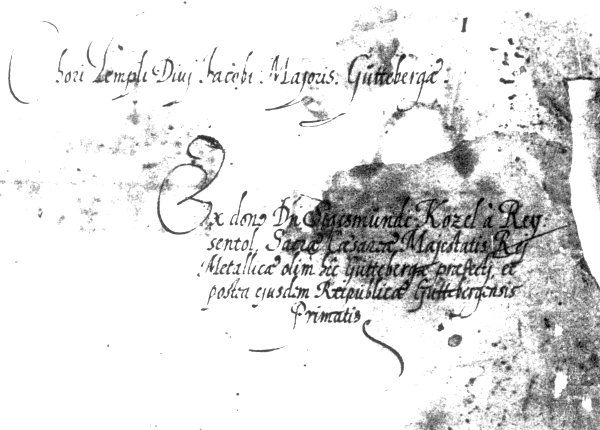 1
Chori Templi Divi Jacobi Majoris Guttebergæ
Ex dono Dn Sigismundi Kozel à Rey-
sentol, Sacræ Cæsareæ Majestatis Rej
Metallicæ olim hic Guttebergæ præfecti et
postea ejusdem Reipublicæ Guttebergensis
Primatis